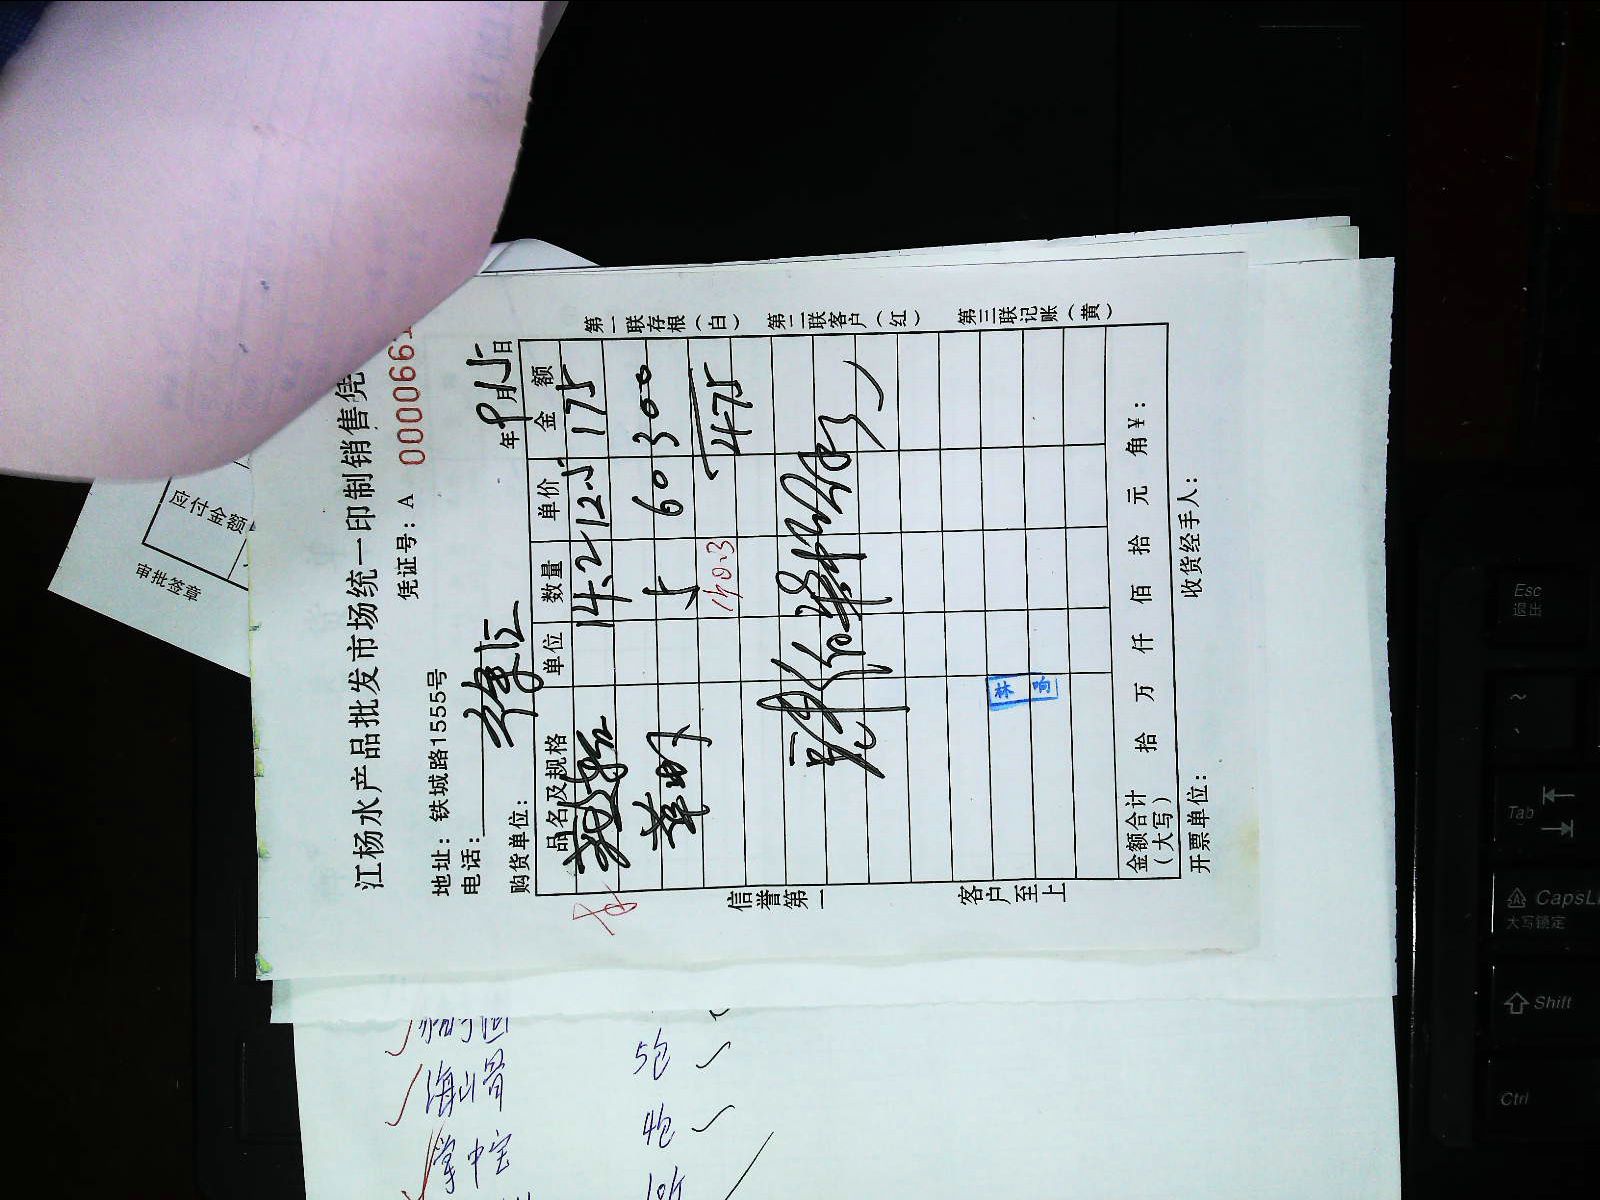 江杨水产品批发市场统一印制销售凭
凭证号：A 000066
地址：铁城路1555号
电话：
购货单位：
年 9月15日
品名及规格 单位 数量 单价 金额
14.2 12.5 175
5 60 300
140.3 475
林响
金额合计（大写） 拾 万 仟 佰 拾 元 角 ¥：
开票单位： 收货经手人：
信誉第一 客户至上
第一联存根（白） 第二联客户（红） 第三联记账（黄）
应付金额
审批签章
5包
海山骨 4包
掌中宝
Esc
Tab
CapsL
大写锁定
Shift
Ctrl